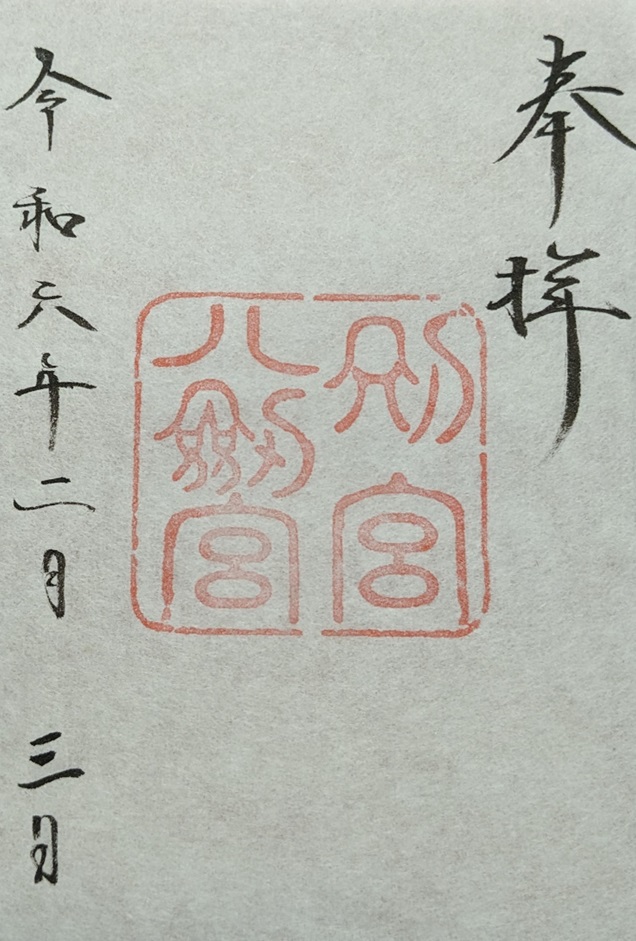 奉拝
別宮
八剱宮
令和六年二月三日